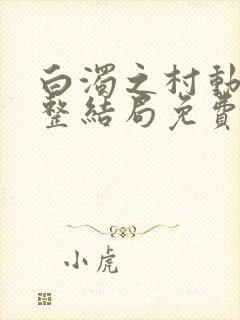 白濁之村動
整結局免費
小虎